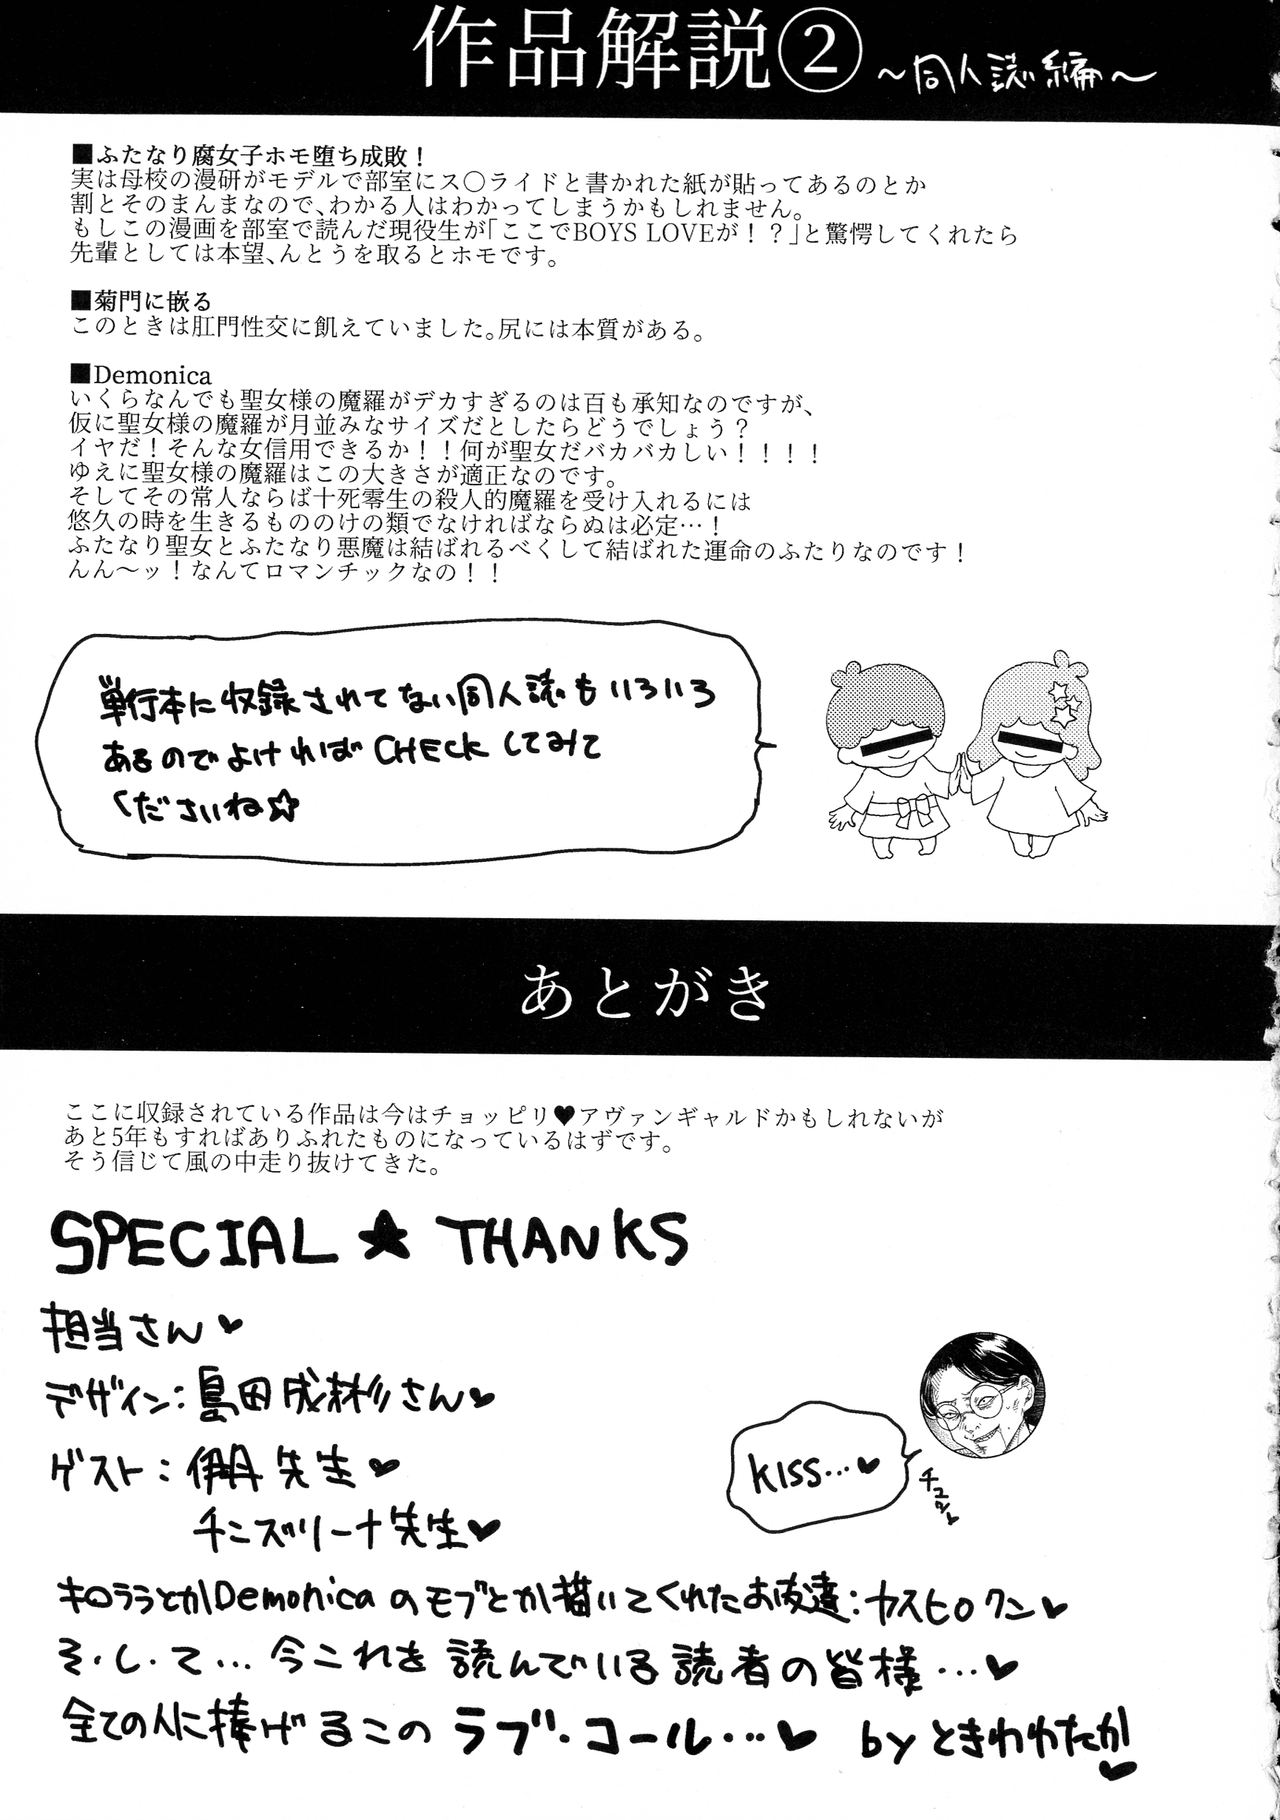 作品解説② ～同人誌編～
■ふたなり腐女子ホモ堕ち成敗！
実は母校の漫研がモデルで部室にス〇ライドと書かれた紙が貼ってあるのとか
割とそのまんまなので、わかる人はわかってしまうかもしれません。
もしこの漫画を部室で読んだ現役生が「ここでBOYS LOVEが！？」と驚愕してくれたら
先輩としては本望、んとうを取るとホモです。
■菊門に嵌る
このときは肛門性交に飢えていました。尻には本質がある。
■Demonica
いくらなんでも聖女様の魔羅がデカすぎるのは百も承知なのですが、
仮に聖女様の魔羅が月並みなサイズだとしたらどうでしょう？
イヤだ！そんな女信用できるか！！何が聖女だバカバカしい！！！！
ゆえに聖女様の魔羅はこの大きさが適正なのです。
そしてその常人ならば十死零生の殺人的魔羅を受け入れるには
悠久の時を生きるもののけの類でなければならぬは必定…！
ふたなり聖女とふたなり悪魔は結ばれるべくして結ばれた運命のふたりなのです！
んん～ッ！なんてロマンチックなの！！
単行本に収録されてない同人誌もいろいろ
あるのでよければCHECKしてみて
くださいね☆
あとがき
ここに収録されている作品は今はチョッピリ♥アヴァンギャルドかもしれないが
あと5年もすればありふれたものになっているはずです。
そう信じて風の中走り抜けてきた。
SPECIAL★THANKS
担当さん♥
デザイン：島田成彬さん♥
ゲスト：伊丹先生♥
チンズリーナ先生♥
kiss…♥
チュッ♥
キロララとかDemonicaのモブとか描いてくれたお友達：ヤスヒロクン♥
そ・し・て…今これを読んでいる読者の皆様…♥
全ての人に捧げるこのラブ・コール…♥ by ときわわたか♥